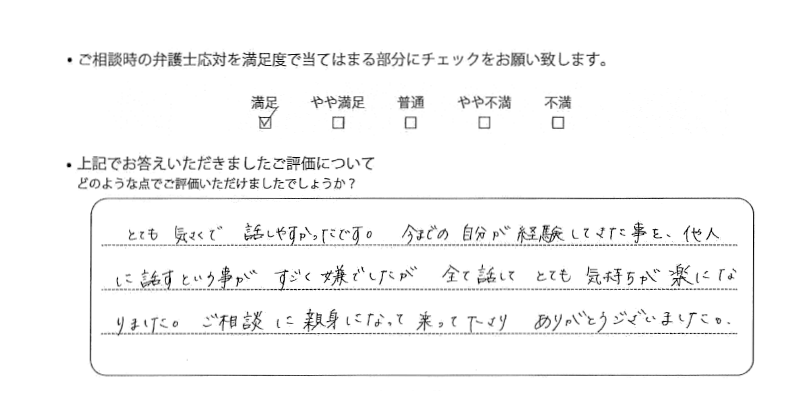 ・ご相談時の弁護士応対を満足度で当てはまる部分にチェックをお願い致します。
満足 やや満足 普通 やや不満 不満
☑ ☐ ☐ ☐ ☐
・上記でお答えいただきましたご評価について
どのような点でご評価いただけましたでしょうか？
とても 気さくで 話しやすかったです。 今までの 自分が 経験してきた事を、他人
に話すという事が すごく嫌でしたが 全て話して とても 気持ちが楽にな
りました。 ご相談に親身になって乗って下さり ありがとうございました。